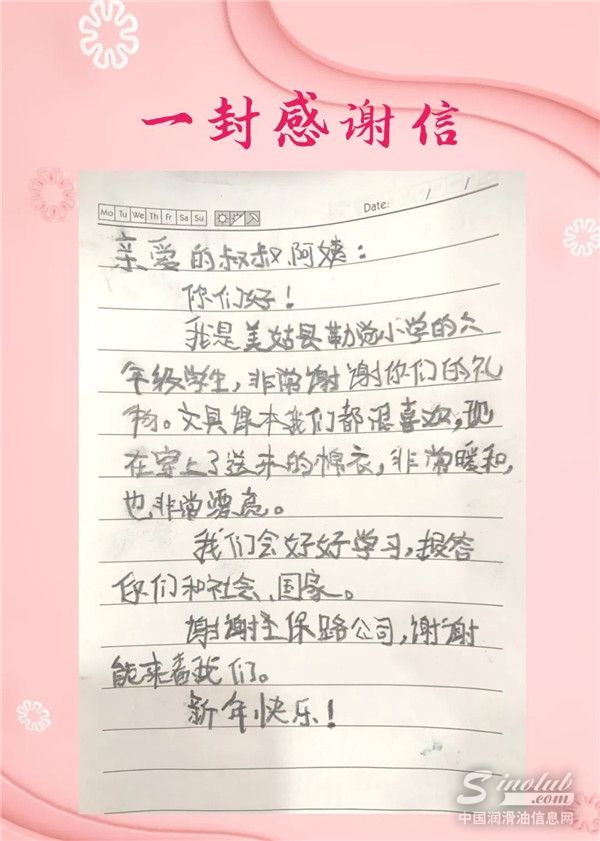 一封感谢信
Mo Tu We Th Fr Sa Su
Date: / /
亲爱的叔叔阿姨：
你们好！
我是美姑县勒觉小学的六
年级学生，非常谢谢你们的礼
物。文具课本我们都很喜欢，现
在穿上了送来的棉衣，非常暖和，
也非常漂亮。
我们会好好学习，报答
你们和社会、国家。
谢谢圭保路公司，谢谢
能来看我们。
新年快乐！
Sinolub
.com
中国润滑油信息网